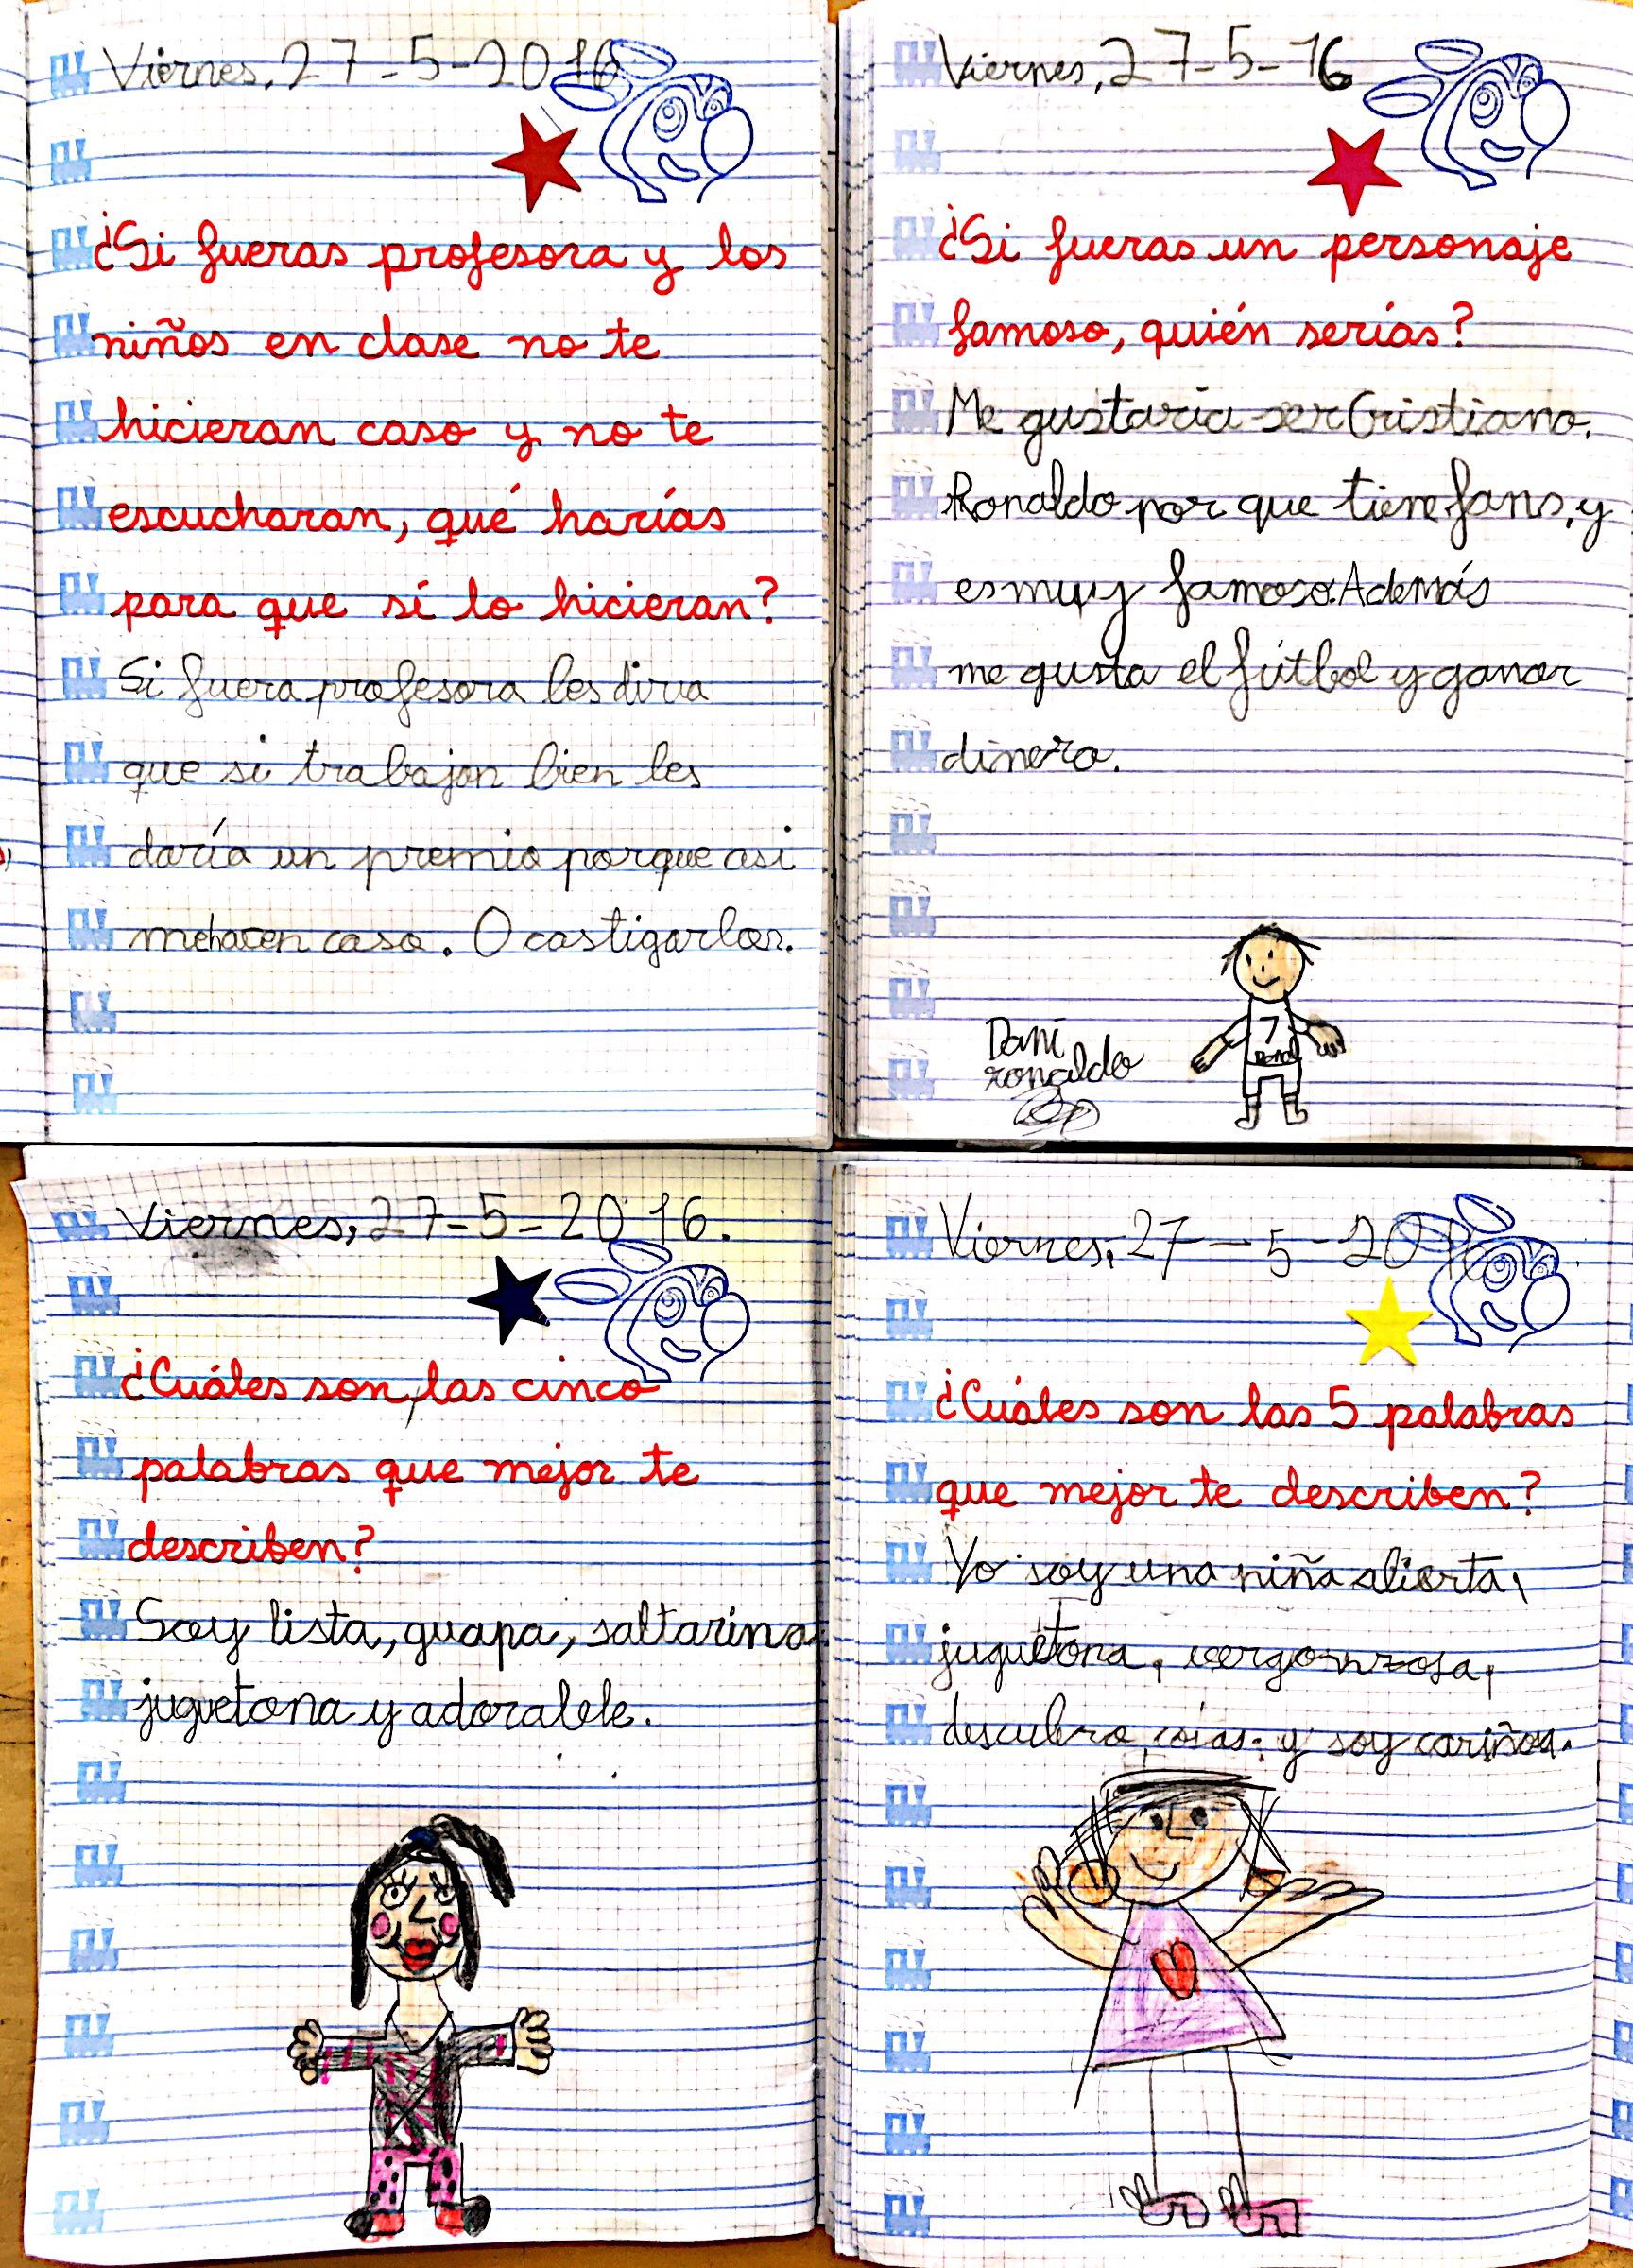 Viernes, 27-5-2016
¿Si fueras profesora y los
niños en clase no te
hicieran caso y no te
escucharan, qué harías
para que sí lo hicieran?
Si fuera profesora les diria
que si trabajan bien les
daría un premio porque asi
me hacen caso. O castigarlos.
Viernes, 27-5-16
¿Si fueras un personaje
famoso, quién serías?
Me gustaría ser Cristiano.
Ronaldo por que tiene fans, y
es muy famoso. Además
me gusta el fútbol y ganar
dinero.
7
Dani
ronaldo
Viernes, 27-5-2016.
¿Cuáles son, las cinco
palabras que mejor te
describen?
Soy lista, guapa, saltarina
juguetona y adorable.
Viernes, 27-5-2016
¿Cuáles son las 5 palabras
que mejor te describen?
Yo soy una niña abierta,
juguetona, vergonzosa,
descubro cosas, y soy cariñosa.